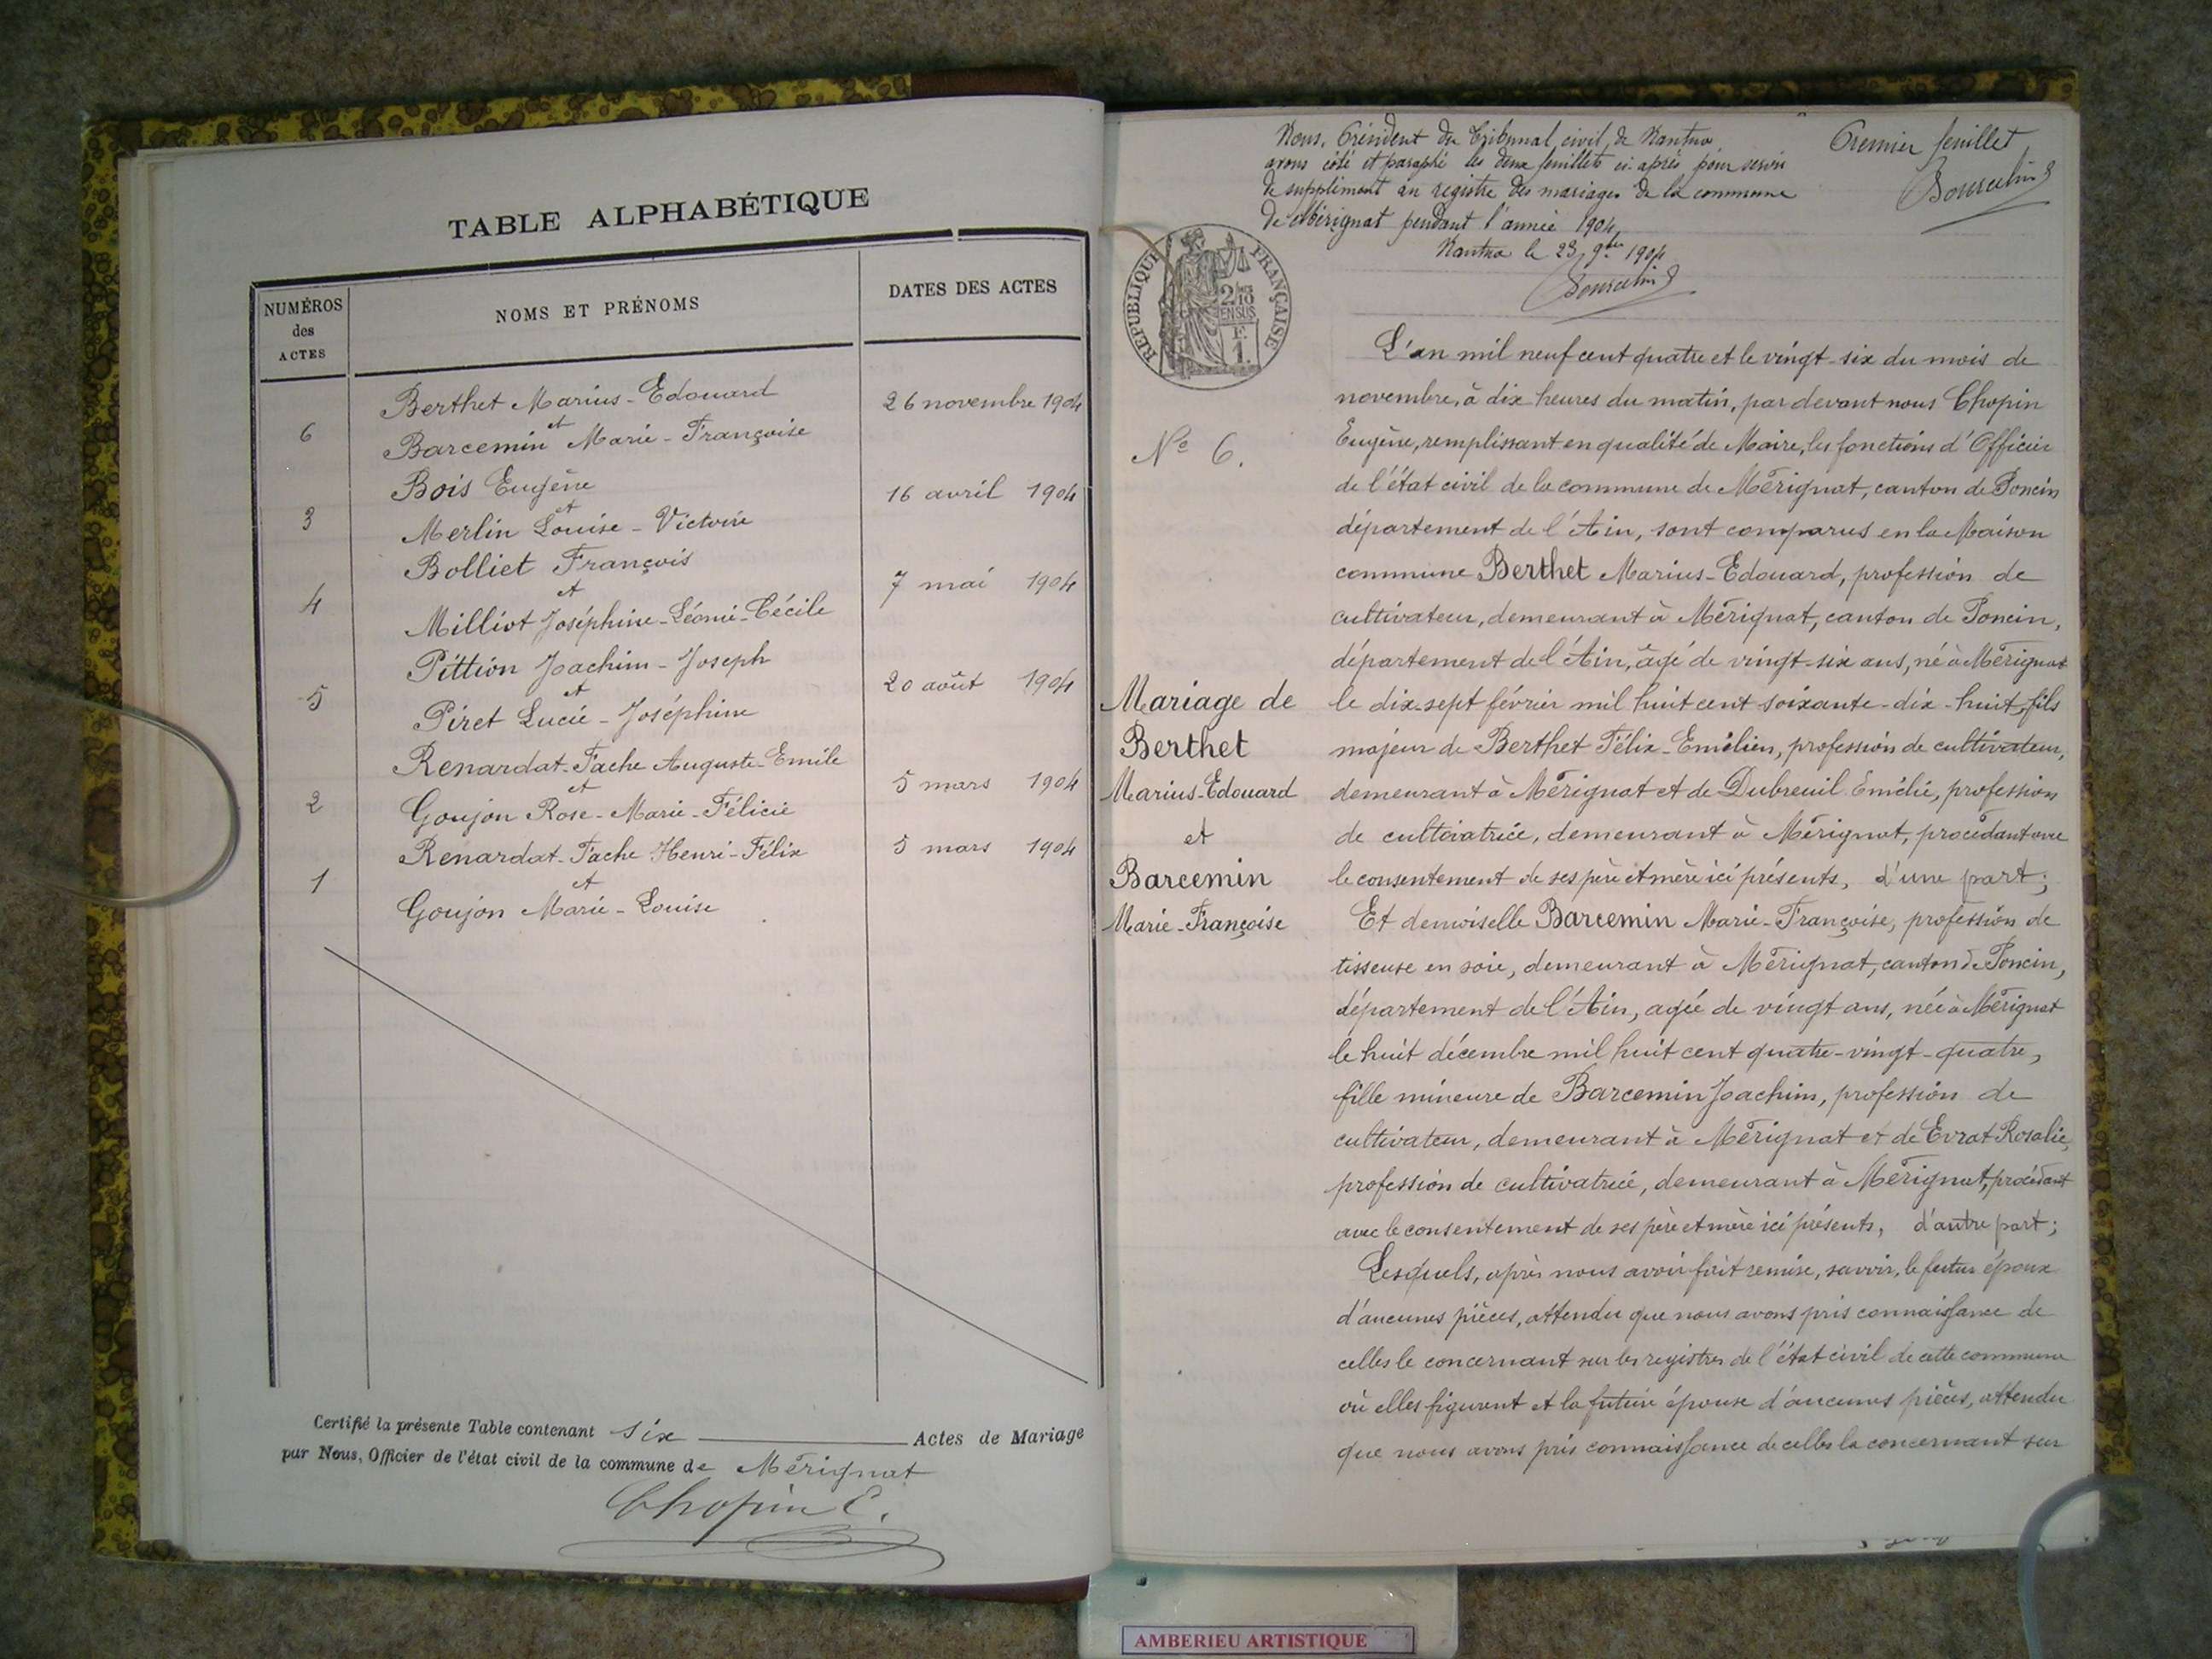 TABLE ALPHABÉTIQUE
NUMÉROS
des
ACTES
NOMS ET PRÉNOMS
DATES DES ACTES
Berthet Marius-Edouard
26 novembre 1904
6
et
Barcemin Marie-Françoise
Bois Eugène
16 avril 1904
3
et
Merlin Louise-Victoire
Bolliet François
7 mai 1904
4
et
Milliot Joséphine-Léonie-Cécile
Pittion Joachim-Joseph
20 août 1904
5
et
Piret Lucie-Joséphine
Renardat-Fache Auguste-Emile
5 mars 1904
2
et
Goujon Rose-Marie-Félicie
Renardat-Fache Henri-Félix
5 mars 1904
1
et
Goujon Marie-Louise
Certifié la présente Table contenant six Actes de Mariage
par Nous, Officier de l'état civil de la commune de Mérignat
Chopin E.
Nous, Président du Tribunal civil de Nantua
avons coté et paraphé les deux feuillets ci-après pour servir
de supplément au registre des mariages de la commune
de Mérignat pendant l'année 1904.
Nantua le 23 9bre 1904
Premier feuillet
RÉPUBLIQUE FRANÇAISE
2/10
EN SUS
F.
1.
L'an mil neuf cent quatre et le vingt-six du mois de
novembre, à dix heures du matin, par devant nous Chopin
Eugène, remplissant en qualité de Maire, les fonctions d'Officier
de l'état civil de la commune de Mérignat, canton de Poncin
département de l'Ain, sont comparus en la Maison
commune Berthet Marius-Edouard, profession de
cultivateur, demeurant à Mérignat, canton de Poncin,
département de l'Ain, âgé de vingt-six ans, né à Mérignat
le dix-sept février mil huit cent soixante-dix-huit, fils
majeur de Berthet Félix-Emilien, profession de cultivateur,
demeurant à Mérignat et de Dubreuil Emélie, profession
de cultivatrice, demeurant à Mérignat, procédant avec
le consentement de ses père et mère ici présents, d'une part;
Et demoiselle Barcemin Marie-Françoise, profession de
tisseuse en soie, demeurant à Mérignat, canton de Poncin,
département de l'Ain, agée de vingt ans, née à Mérignat
le huit décembre mil huit cent quatre-vingt-quatre,
fille mineure de Barcemin Joachim, profession de
cultivateur, demeurant à Mérignat et de Evrat Rosalie,
profession de cultivatrice, demeurant à Mérignat, procédant
avec le consentement de ses père et mère ici présents, d'autre part;
Lesquels, après nous avoir fait remise, savoir, le futur époux
d'aucunes pièces, attendu que nous avons pris connaissance de
celles le concernant sur les registres de l'état civil de cette commune
où elles figurent et la future épouse d'aucunes pièces, attendu
que nous avons pris connaissance de celles la concernant sur
No 6.
Mariage de
Berthet
Marius-Edouard
et
Barcemin
Marie-Françoise
AMBERIEU ARTISTIQUE